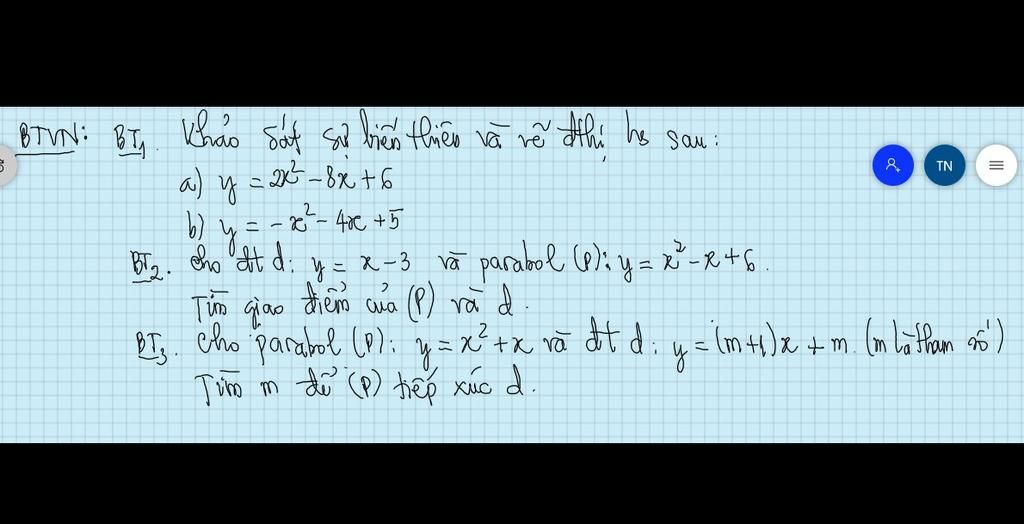 BTVN: BT1. Khảo sát sự biến thiên và vẽ đthị hs sau:
a) y = 2x² - 8x + 6
b) y = -x² - 4x + 5
BT2. Cho đt d: y = x - 3 và parabol (P): y = x² - x + 6.
Tìm giao điểm của (P) và d.
BT3. Cho parabol (P): y = x² + x và đt d: y = (m+1)x + m. (m là tham số)
Tìm m để (P) tiếp xúc d.
TN